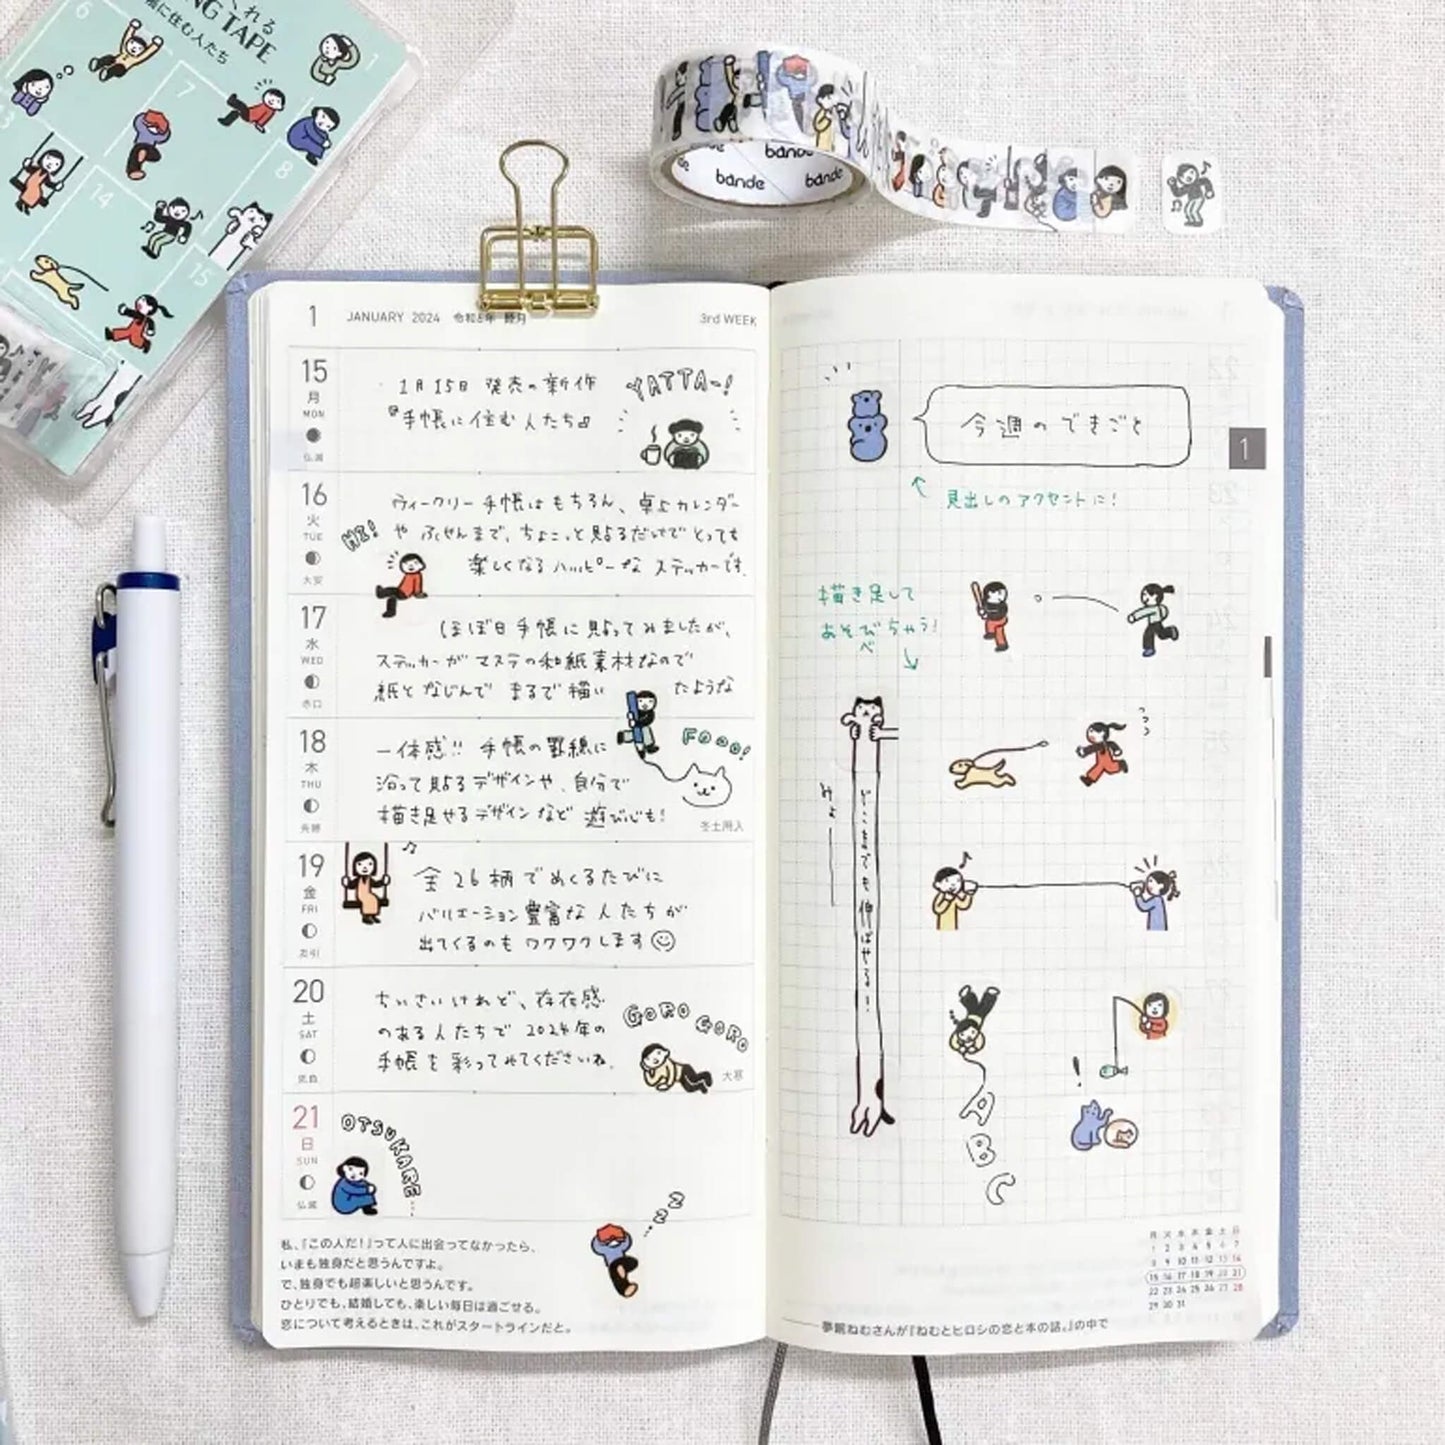 くれる
NG TAPE
帳に住む人たち
6
1
7
8
14
15
bande
bande
bande
1 JANUARY 2024 令和6年 睦月 3rd WEEK
15
月
MON
仏滅
1月15日 発売の新作
『手帳に住む人たち』
YATTA~!
16
火
TUE
大安
ウィークリー手帳はもちろん、卓上カレンダー
や ふせんまで、ちょこっと貼るだけでとっても
楽しくなるハッピーな ステッカーです。
HI!
17
水
WED
赤口
ほぼ日手帳に貼ってみましたが、
ステッカーが マステの和紙素材なので
紙となじんで まるで描い たような
18
木
THU
先勝
一体感!! 手帳の罫線に
沿って貼るデザインや、自分で
描き足せるデザインなど 遊び心も!
FOOO!
冬土用入
19
金
FRI
友引
全26柄でめくるたびに
バリエーション豊富な人たちが
出てくるのもワクワクします
20
土
SAT
先負
ちいさいけれど、存在感
のある人たちで 2024年の
手帳を彩ってみてくださいね。
GORO GORO
大寒
21
日
SUN
仏滅
OTSUKARE...
zzz
私、「この人だ!」って人に出会ってなかったら、
いまも独身だと思うんですよ。
で、独身でも超楽しいと思うんです。
ひとりでも、結婚しても、楽しい毎日は過ごせる。
恋について考えるときは、これがスタートラインだと。
今週のできごと
1
見出しのアクセントに!
描き足して
あそびちゃう!
べ
みょーーー
どこまでも伸ばせる!
!
A
B
C
月 火 水 木 金 土 日
1 2 3 4 5 6 7
8 9 10 11 12 13 14
15 16 17 18 19 20 21
22 23 24 25 26 27 28
29 30 31
夢眠ねむさんが『ねむとヒロシの恋と本の話。』の中で